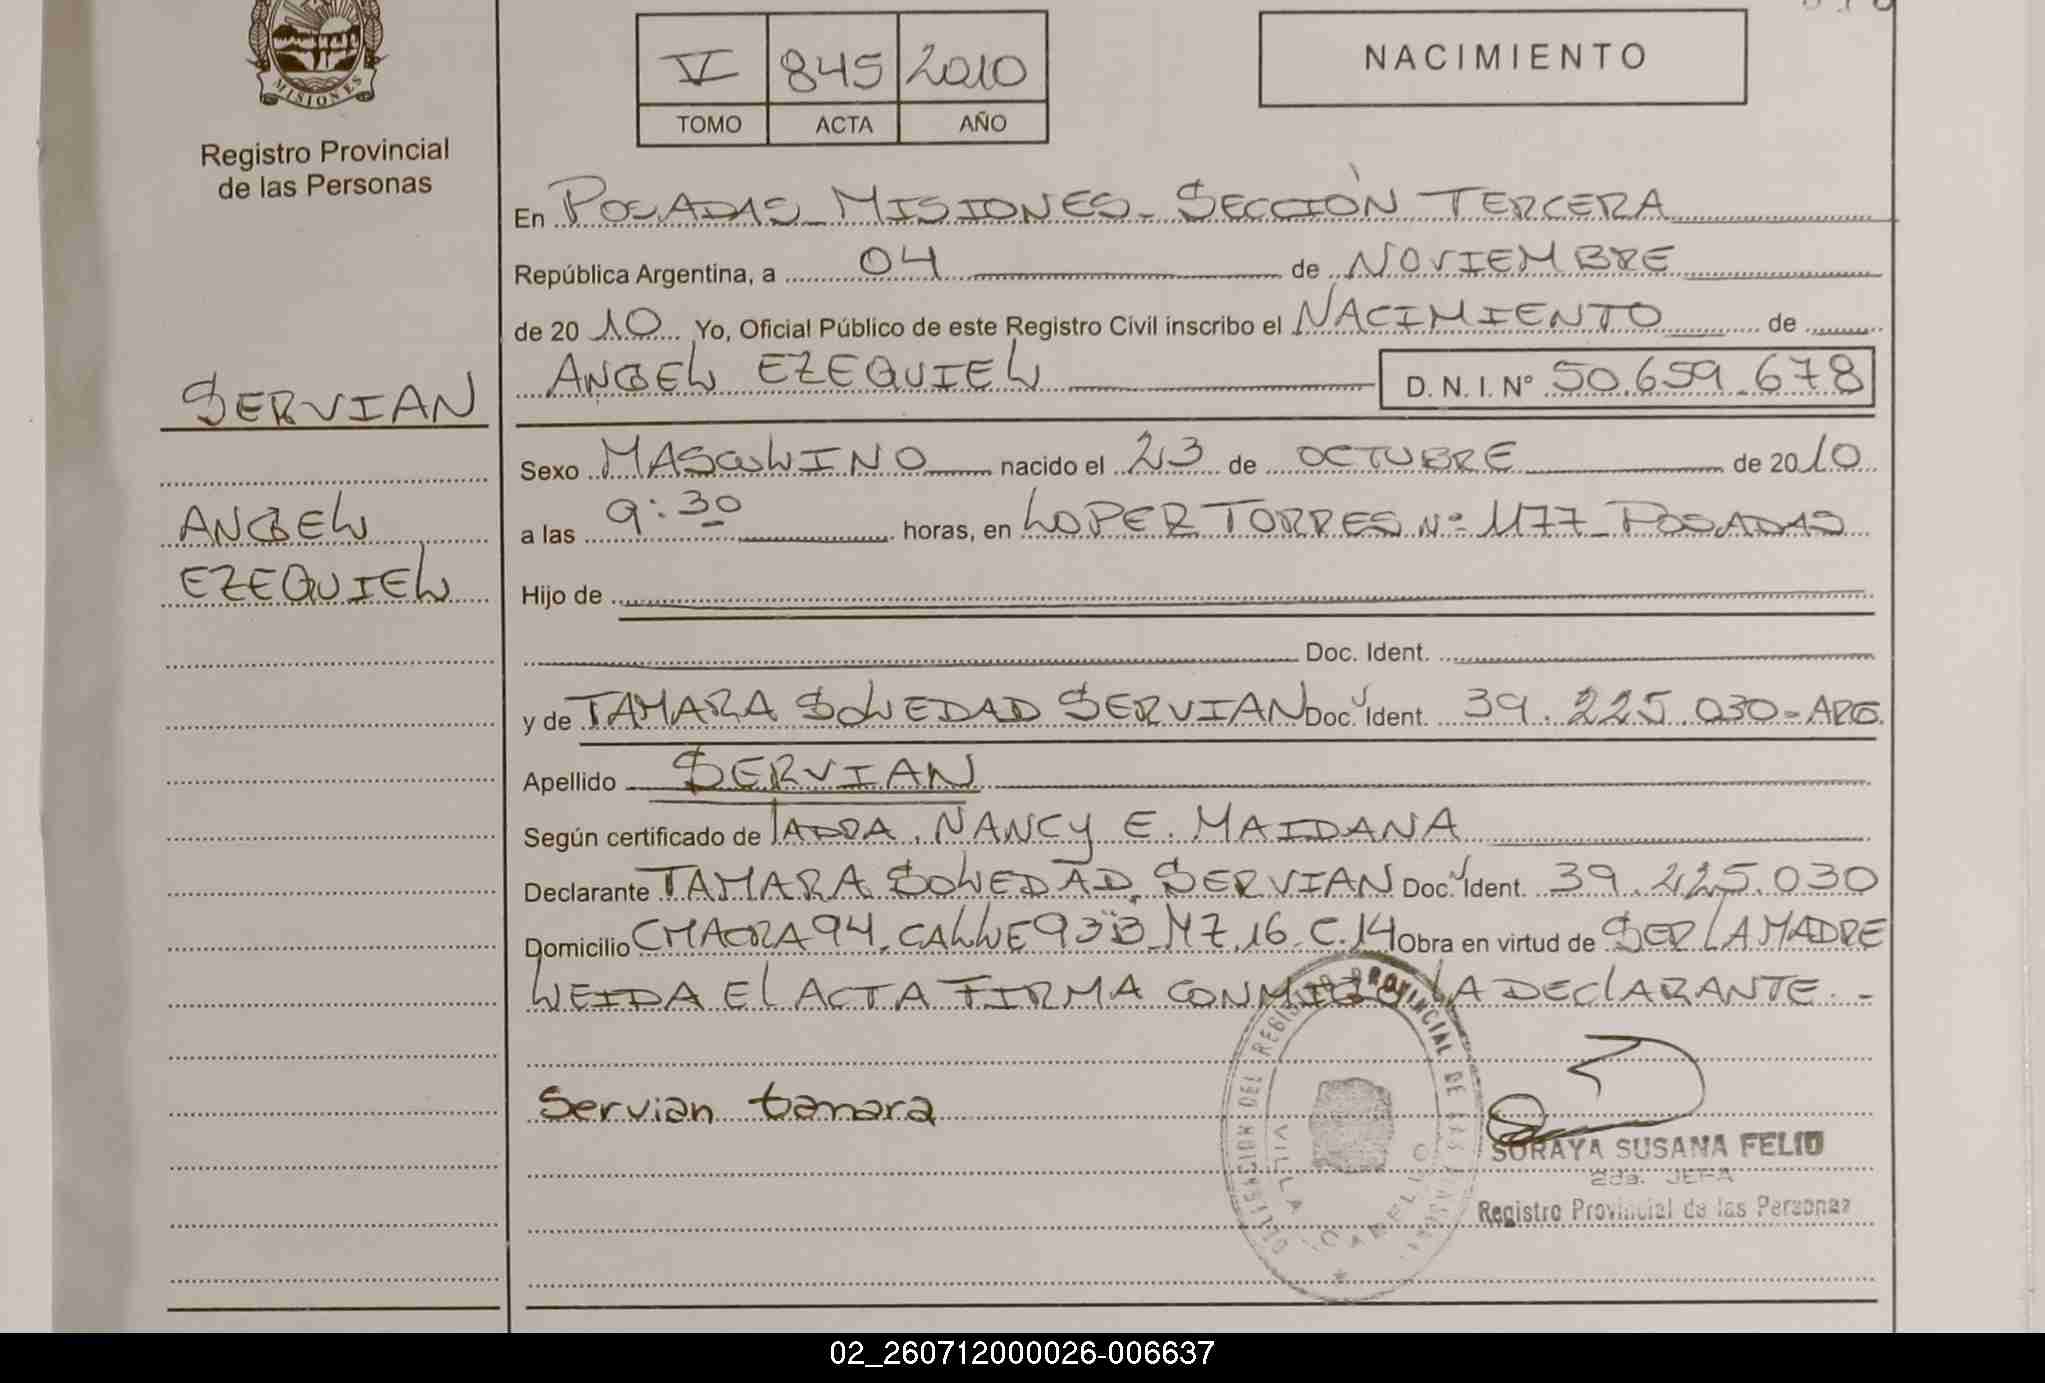 MISIONES
Registro Provincial
de las Personas
SERVIAN
ANGEL
EZEQUIEL
V 845 2010
TOMO ACTA AÑO
NACIMIENTO
En POSADAS - MISIONES - SECCIÓN TERCERA
República Argentina, a 04 de NOVIEMBRE
de 2010 Yo, Oficial Público de este Registro Civil inscribo el NACIMIENTO de
ANGEL EZEQUIEL D. N. I. N° 50.659.678
Sexo MASCULINO nacido el 23 de OCTUBRE de 2010
a las 9:30 horas, en LOPEZ TORRES Nº 1177 - POSADAS
Hijo de
Doc. Ident.
y de TAMARA SOLEDAD SERVIAN Doc. Ident. 39.225.030 - ARG.
Apellido SERVIAN
Según certificado de NANCY E. MAIDANA
Declarante TAMARA SOLEDAD SERVIAN Doc. Ident. 39.225.030
Domicilio CHACRA 94. CALLE 93B MZ 16 C. 14 Obra en virtud de SER LA MADRE
LEIDA El ACTA FIRMA CONMIGO LA DEClARANTE. -
Servian tamara
DELEGACION DEL REGISTRO PROVINCIAL DE LAS PERSONAS
VILLA CABELLO
SORAYA SUSANA FELIU
2da. JEFA
Registro Provincial de las Personas
02_260712000026-006637